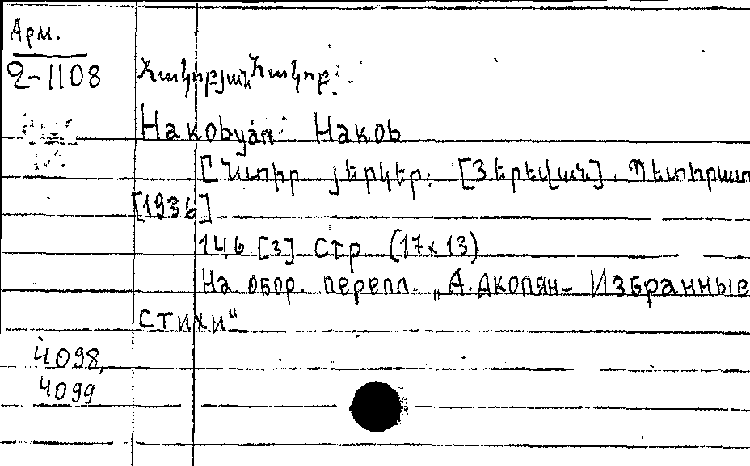 Арм.
2-1108
Հակոբյան Հակոբ.
Hakobyan Hakob
[Ընտիր յերկեր. [Յերեվան]. Պետհրատ
[1936]
146 [3] стр (17x13)
На обор. перепл. „А. Акопян - Избранные
стихи“
4098,
4099